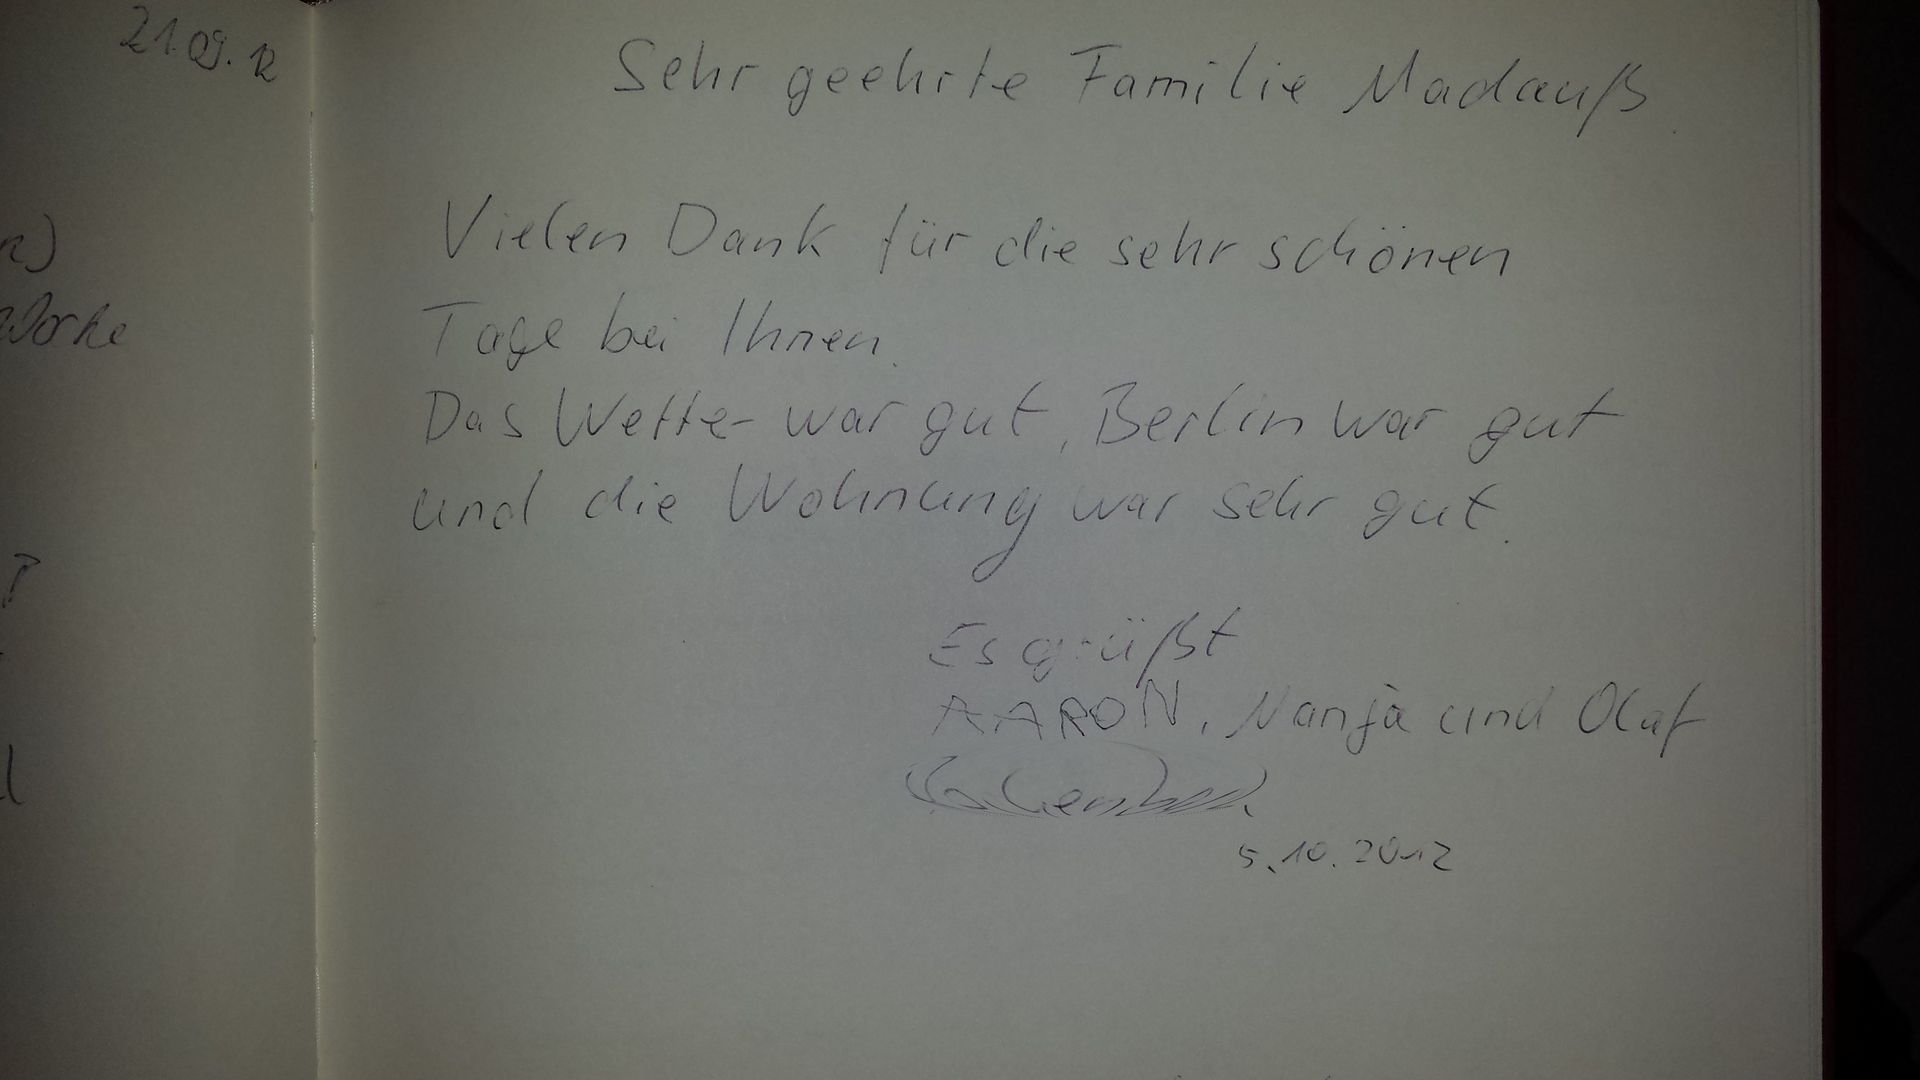 21.09.12
Sehr geehrte Familie Madauß
Vielen Dank für die sehr schönen
Tage bei Ihnen.
Das Wetter war gut, Berlin war gut
und die Wohnung war sehr gut.
Es grüßt
AARON, Nanja und Olaf
5.10.2012